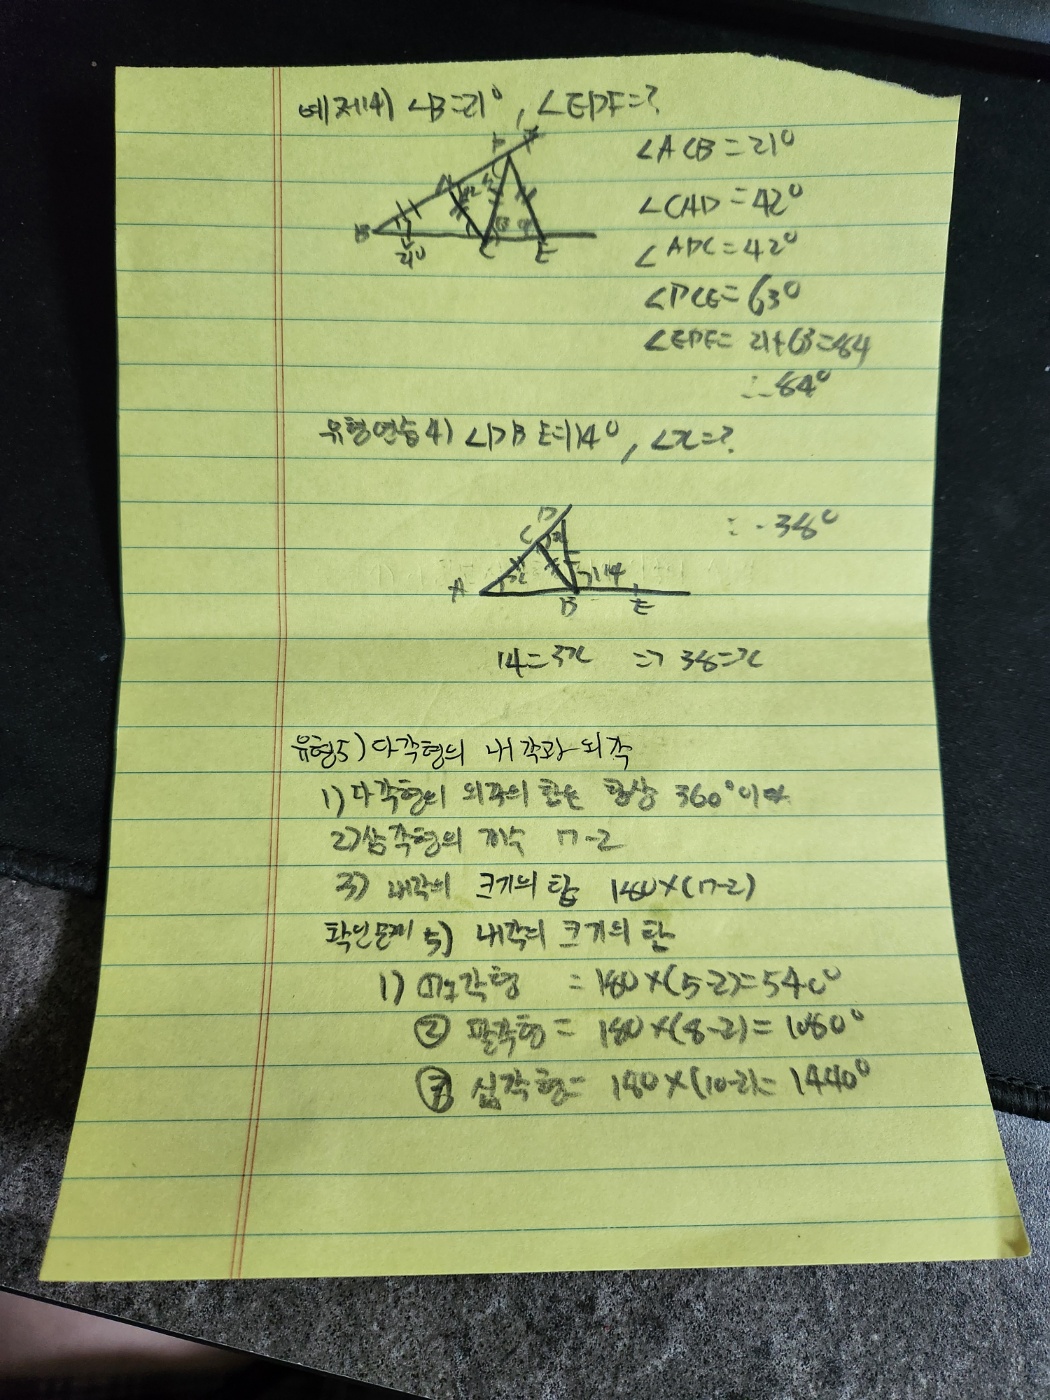 예제4) ∠B=21°, ∠EDF=?
∠ACB=21°
∠CAD=42°
∠ADC=42°
∠DCE=63°
∠EDF=21+63=84
∴84°
B A C D E F
21°
유형연습4) ∠DBE=114°, ∠x=?
∴38°
A C D B E
x x 114
114=3x => 38=x
유형5) 다각형의 내각과 외각
1) 다각형의 외각의 합은 항상 360°이다
2) 삼각형의 개수 n-2
3) 내각의 크기의 합 180×(n-2)
확인문제 5) 내각의 크기의 합
1) 각형 =180×(5-2)=540°
② 팔각형= 180×(8-2)=1080°
③ 십각형= 180×(10-2)=1440°